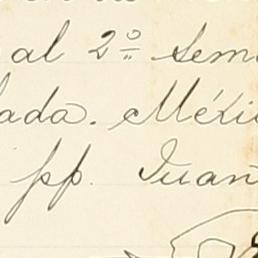 al 2º Sem
ada. Méxi
pp. Juan